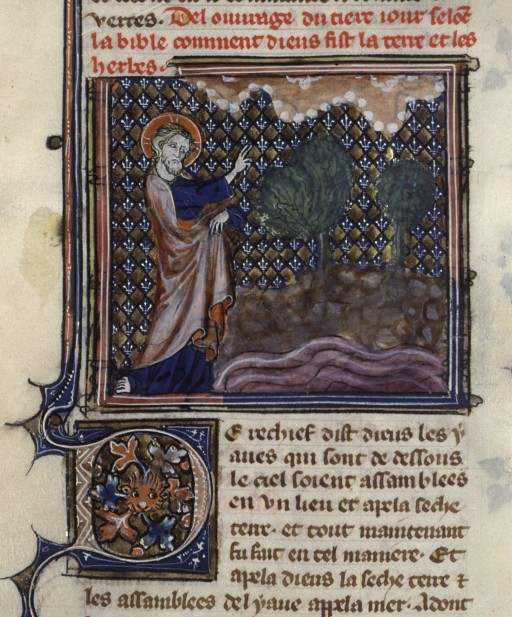 vertes. Del ouvraige du tierc iour selōc
la bible comment dieus fist la terre et les
herbes.
De rechief dist dieus les y
aues qui sont de dessous
le ciel soient assamblees
en vn lieu et apela seche
terre. et tout maintenant
fu fait en tel maniere. Et
apela dieus la seche terre ⁊
les assamblees del yaue appela mer. Adont